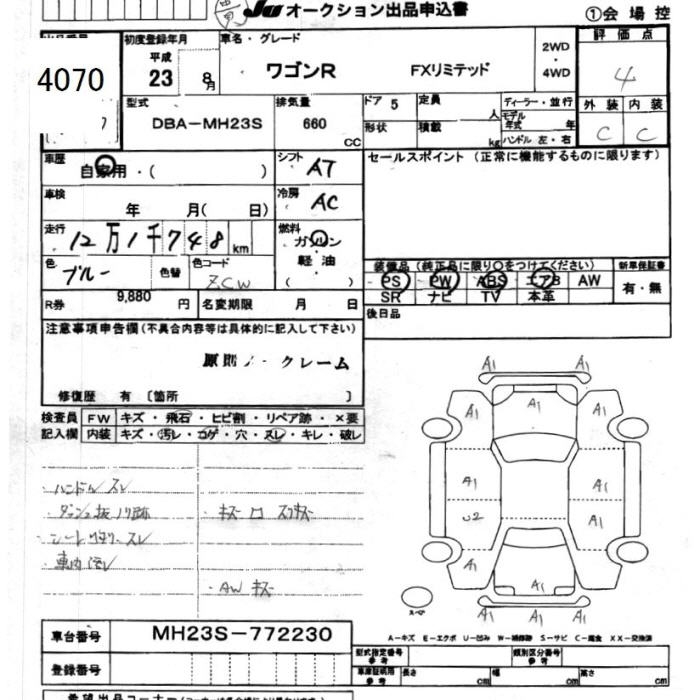 JU オークション出品申込書
①会場控
4070
初度登録年月
平成
23 8月
車名・グレード
ワゴンR FXリミテッド
2WD
・
4WD
評価点
4
型式
DBA-MH23S
排気量
660 CC
ドア 5
形状
定員 人
積載 kg
ディーラー・並行
モデル年式 年
ハンドル 左・右
外装 内装
C C
車歴
自家用・( )
シフト AT
セールスポイント(正常に機能するものに限ります)
車検
年 月( 日)
冷房 AC
走行
12万1千748km
燃料
ガソリン
軽油
( )
色
ブルー
色替
色コード
ZCW
装備品(純正品に限り○をつけてください)
PS PW ABS エアB AW
SR ナビ TV 本革
新車保証書
有・無
R券 9,880円
名変期限 月 日
後日品
注意事項申告欄(不具合内容等は具体的に記入して下さい)
原則ノークレーム
修復歴 有〔箇所 〕
検査員
記入欄
FW キズ・飛石・ヒビ割・リペア跡・×要
内装 キズ・汚レ・コゲ・穴・スレ・キレ・破レ
・ハンドルスレ
・車内汚レ
・AWキズ
A1 A1
A1 A1 A1
A1 A1
U2 A1
A1 A1
A1 A1 A1
スペア
A-キズ E-エクボ U-凹み W-補修跡 S-サビ C-腐食 XX-交換済
車台番号 MH23S-772230
登録番号
型式指定番号
参考
類別区分番号
参考
車庫証明用
参考
長さ cm 幅 cm 高さ cm